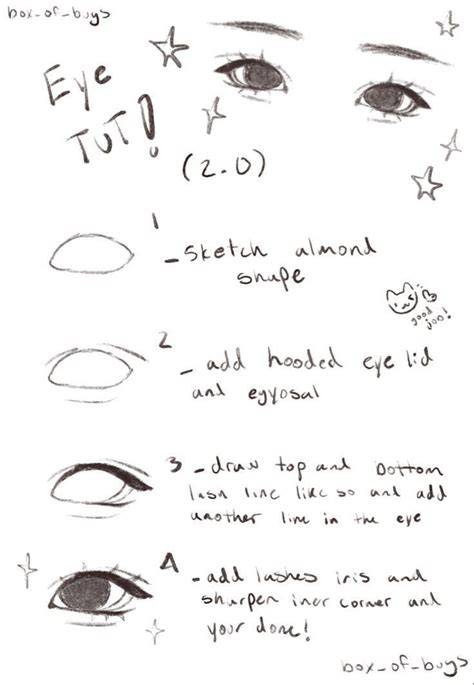 box_of_bugs
Eye
TUT!
(2.0)
1
- Sketch almond
shape
good
joo!
2
- add hooded eye lid
and egyosal
3 - draw top and bottom
lash line like so and add
another line in the eye
4
- add lashes iris and
sharpen iner corner and
your done!
box_of_bugs